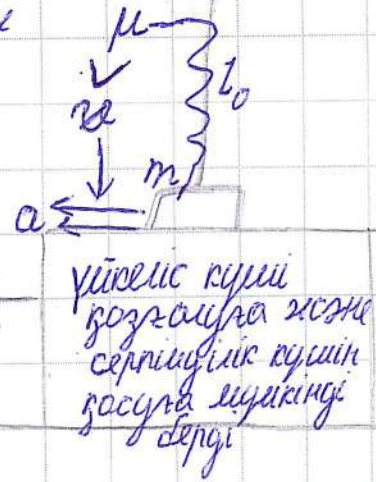 μ
l₀
æ
m
a
үйкеліс күші
қозғалуға және
серпімділік күшін
қосуға мүмкінді
берді